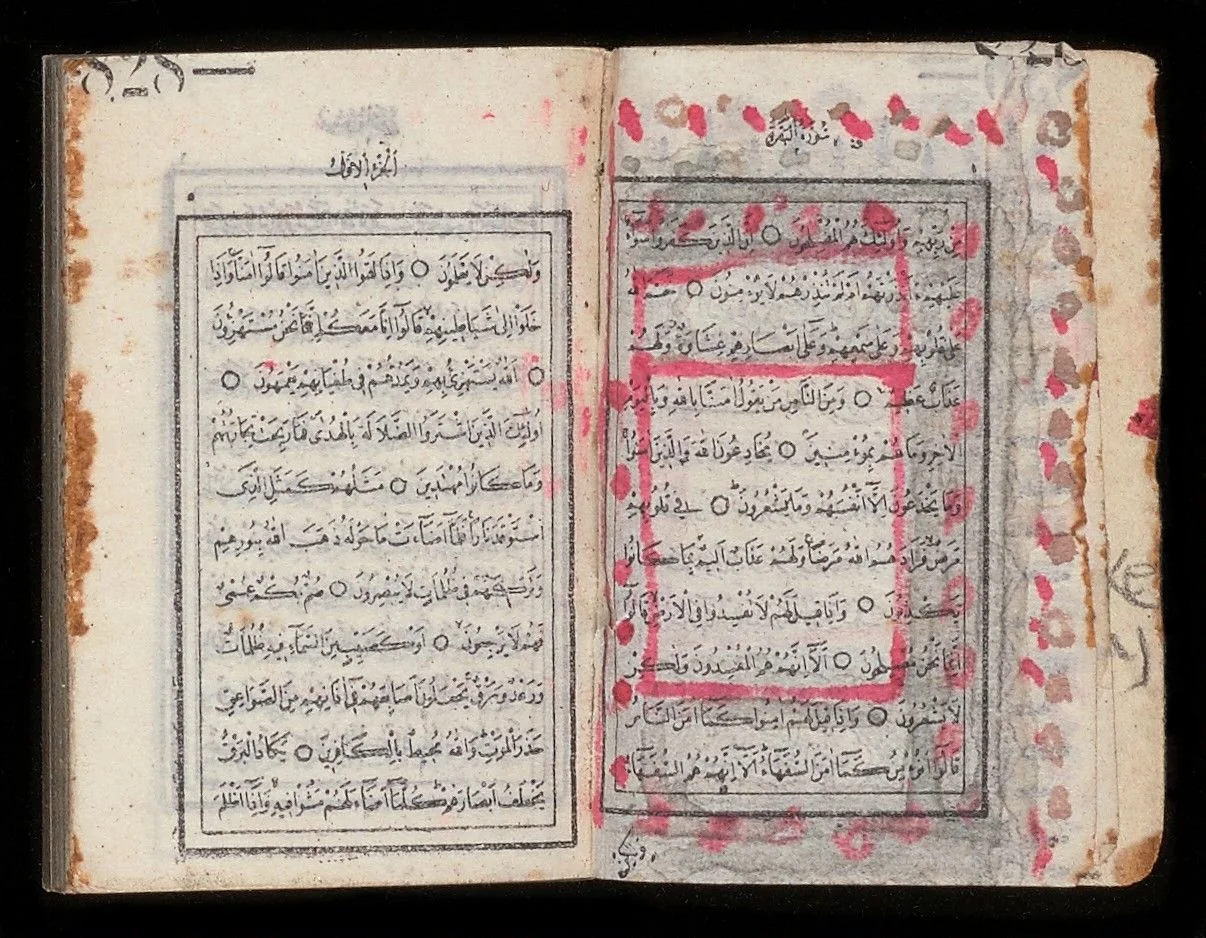 سورة البقرة
من ربهم واولئك هم المفلحون ○ ان الذين كفروا سواء
عليهم ءانذرتهم ام لم تنذرهم لا يؤمنون ○ ختم الله
على قلوبهم وعلى سمعهم وعلى ابصارهم غشاوة ولهم
عذاب عظيم ○ ومن الناس من يقول امنا بالله وباليوم
الاخر وما هم بمؤمنين ○ يخادعون الله والذين امنوا
وما يخدعون الا انفسهم وما يشعرون ○ في قلوبهم
مرض فزادهم الله مرضا ولهم عذاب اليم بما كانوا
يكذبون ○ واذا قيل لهم لا تفسدوا في الارض قالوا
انما نحن مصلحون ○ الا انهم هم المفسدون ولكن
لا يشعرون ○ واذا قيل لهم امنوا كما امن الناس
قالوا انؤمن كما امن السفهاء الا انهم هم السفهاء
ولكن
الجزء الاول
ولكن لا يعلمون ○ واذا لقوا الذين امنوا قالوا امنا واذا
خلوا الى شياطينهم قالوا انا معكم انما نحن مستهزؤن
○ الله يستهزئ بهم ويمدهم في طغيانهم يعمهون ○
اولئك الذين اشتروا الضلالة بالهدى فما ربحت تجارتهم
وما كانوا مهتدين ○ مثلهم كمثل الذي
استوقد نارا فلما اضاءت ما حوله ذهب الله بنورهم
وتركهم في ظلمات لا يبصرون ○ صم بكم عمي
فهم لا يرجعون ○ او كصيب من السماء فيه ظلمات
ورعد وبرق يجعلون اصابعهم في اذانهم من الصواعق
حذر الموت والله محيط بالكافرين ○ يكاد البرق
يخطف ابصارهم كلما اضاء لهم مشوا فيه واذا اظلم